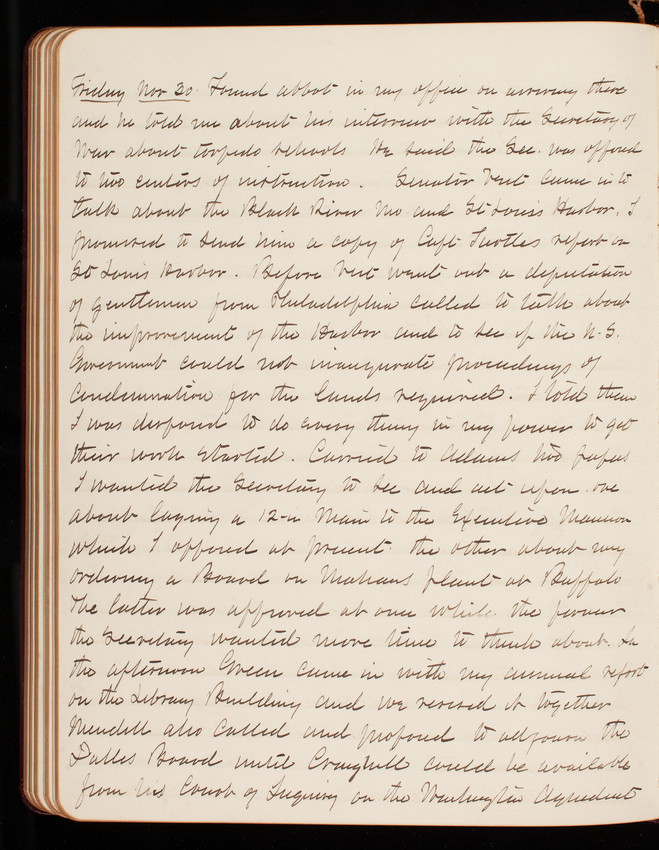 Friday Nov 30. Found Abbot in my office on arriving there
and he told me about his interview with the Secretary of
War about torpedo schools He said the Sec. was opposed
to two centers of instruction. Senator Vest came in to
talk about the Black River Mo. and St Louis Harbor. I
promised to send him a copy of Capt Suttles report on
St Louis Harbor. Before Vest went out a deputation
of gentlemen from Philadelphia called to talk about
the improvement of the Harbor and to see if the U.S.
Government could not inaugurate proceedings of
Condemnation for the lands required. I told them
I was disposed to do every thing in my power to get
their work started. Carried to Adams two papers
I wanted the Secretary to see and act upon. one
about laying a 12-in Main to the Executive Mansion
which I opposed at present. the other about my
ordering a Board on Mahans plant at Buffalo
The latter was approved at once while the former
the Secretary wanted more time to think about. In
the afternoon Green came in with my annual report
on the Library Building and we revised it together
Mendell also called and proposed to adjourn the
Dalles Board until Craighill could be available
from his Court of Inquiry on the Washington Aqueduct